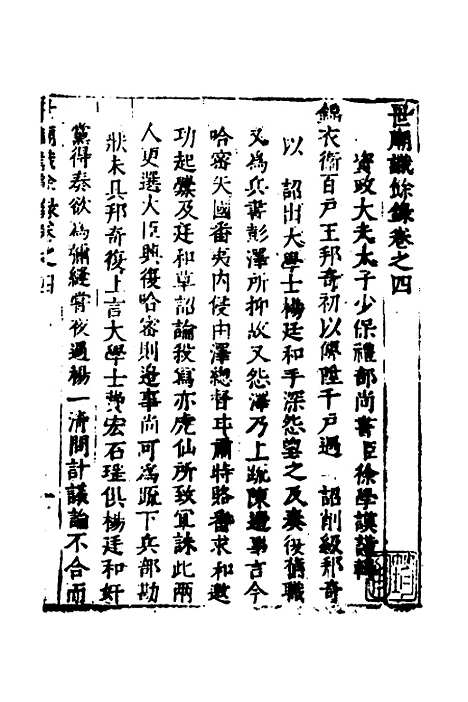 世廟識餘錄卷之四
資政大夫太子少保禮部尚書臣徐學謨謹輯
錦衣衛百戶王邦奇初以傳陞千戶遇 詔削級邦奇
以 詔出大學士楊廷和手深怨望之及奏復舊職
又為兵書彭澤所抑故又怨澤乃上疏陳邊事言今
哈密失國番夷內侵由澤總督甘肅時賂番求和邀
功起釁及廷和草詔論殺寫亦虎仙所致宜誅此兩
人更選大臣興復哈密則邊事尚可為疏下兵部勘
狀未具邦奇復上言大學士費宏石珤俱楊廷和奸
黨得奏欲為彌縫嘗夜過楊一清問計議論不合而
世廟識餘錄卷之四